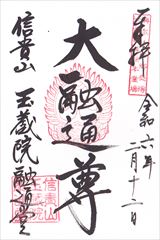 奉拝
令和六年
二月十二日
大融通尊
信貴山
玉蔵院融通堂
信貴山
玉蔵院